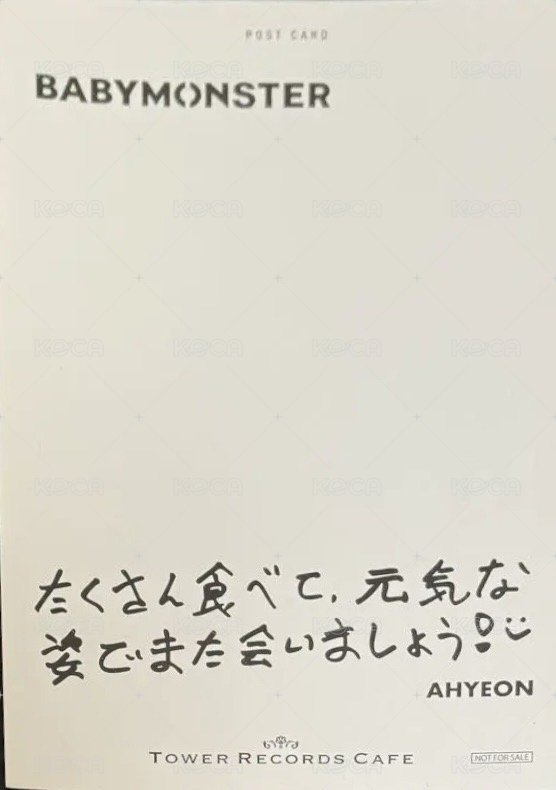 POST CARD
BABYMONSTER
たくさん食べて、元気な
姿でまた会いましょう!
AHYEON
TOWER RECORDS CAFE
NOT FOR SALE
KOCA